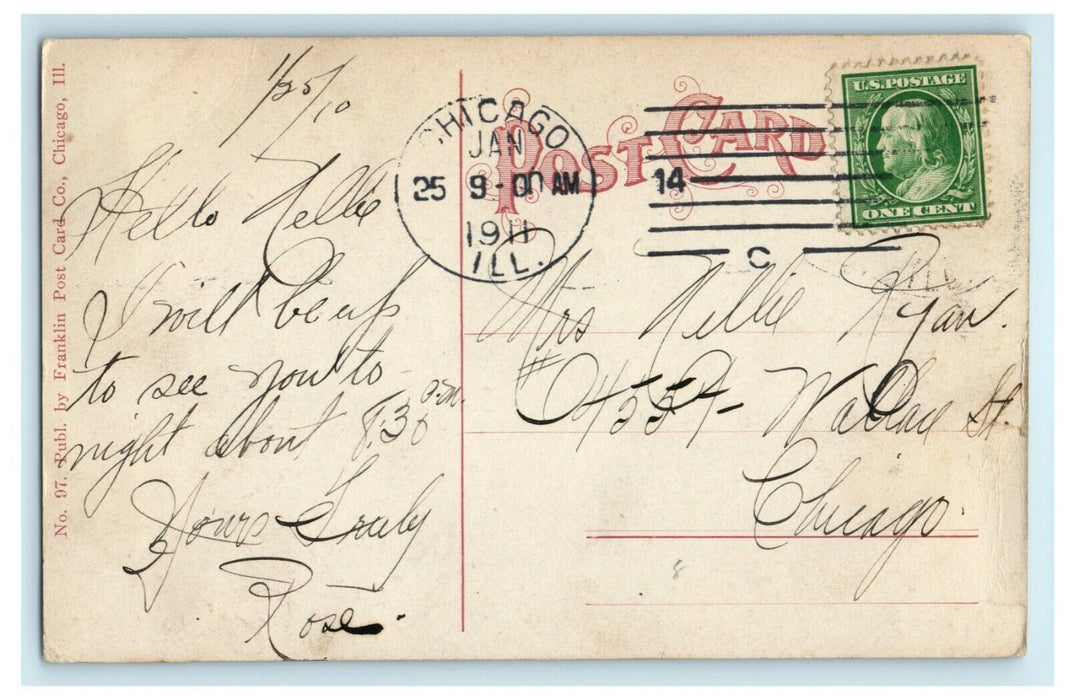 No. 97. Publ. by Franklin Post Card Co., Chicago, Ill.
1/25/10
Hello Nellie
I will be up
to see you to
night about 8.30 P.M.
Yours Truly
Rose.
POST CARD
CHICAGO
JAN
25 9-00 AM
1911
ILL.
14
C
U.S. POSTAGE
ONE CENT
Mrs Nellie Ryan.
# 4557- Wallace St.
Chicago.
8